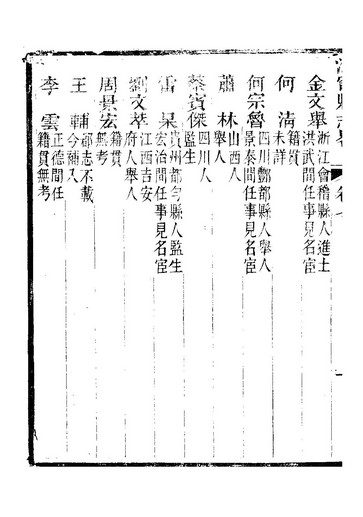 縣志
卷七
金文舉浙江會稽縣人進士
洪武間任事見名宦
何 清籍貫
未詳
何宗魯四川酆都縣人舉人
景泰間任事見名宦
蕭 林山西人
舉人
蔡賓傑四川人
監生
雷 杲貴州都勻縣人監生
宏治間任事見名宦
劉文萃江西吉安
府人舉人
周景宏籍貫
無考
王 輔郡志不載
今補入
李 雲正德間任
籍貫無考